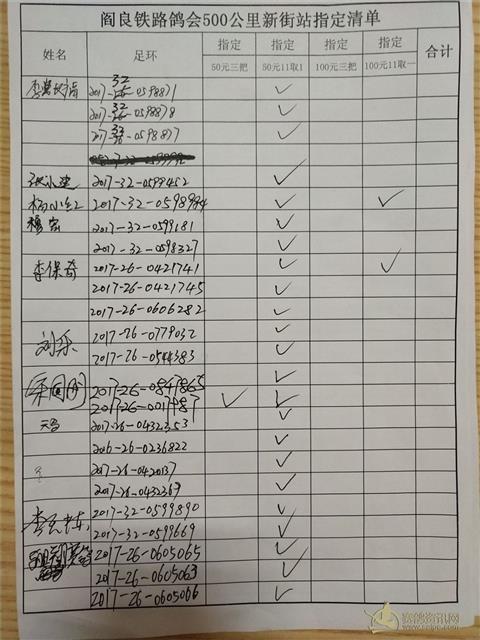 阎良铁路鸽会500公里新街站指定清单
姓名 足环 指定 指定 指定 指定 合计
50元三把 50元11取1 100元三把 100元11取一
2017-32-0598871 ✓
2017-32-0598878 ✓
2017-32-0598877 ✓
张小建 2017-32-0599452 ✓
杨小红 2017-32-0598994 ✓ ✓
穆宏 2017-32-0599181 ✓
2017-32-0598327 ✓
李保奇 2017-26-0421741 ✓ ✓
2017-26-0421745 ✓
2017-26-0606282 ✓
刘乐 2017-26-0779032 ✓
2017-26-0544383 ✓
2017-26-0847865 ✓
2017-26-0017987 ✓ ✓
2017-26-0432353 ✓
2016-26-0236822 ✓
2017-26-0420137 ✓
2017-26-0432369 ✓
2017-32-0599890 ✓
2017-32-0599669 ✓
2017-26-0605065 ✓
2017-26-0605063 ✓
2017-26-0605066 ✓
赛鸽资讯网